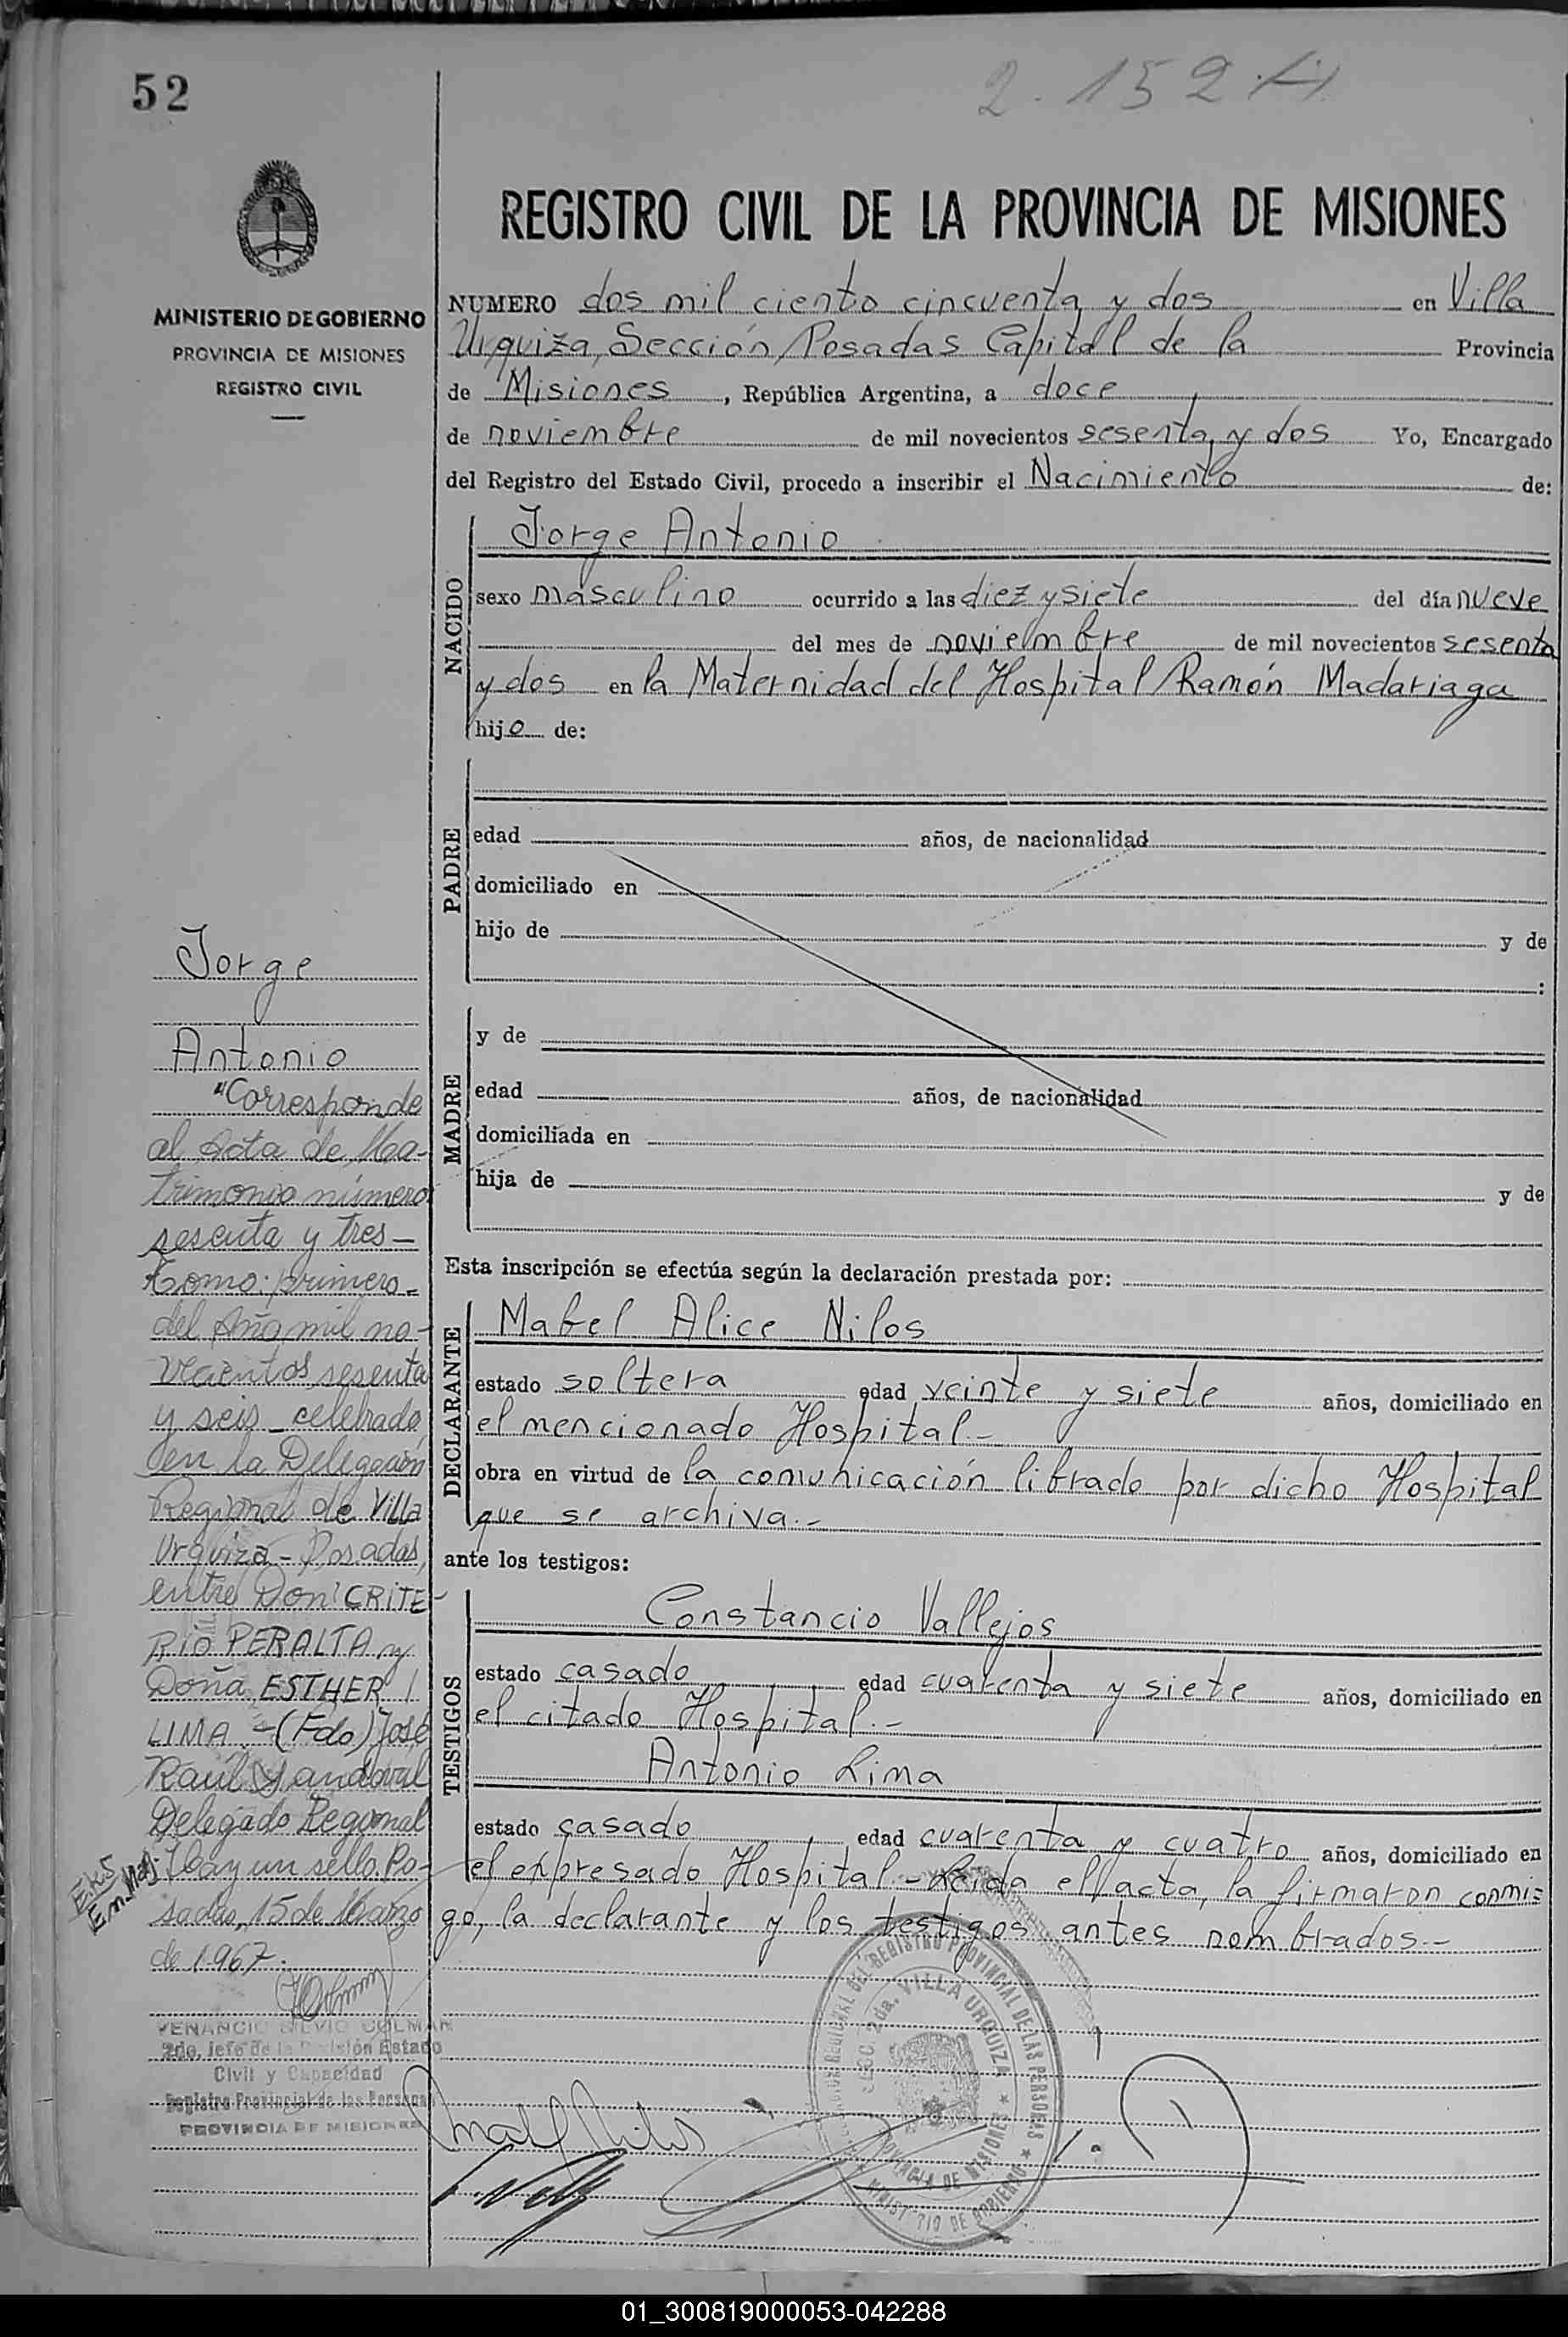 52
2.152
MINISTERIO DE GOBIERNO
PROVINCIA DE MISIONES
REGISTRO CIVIL
REGISTRO CIVIL DE LA PROVINCIA DE MISIONES
NUMERO dos mil ciento cincuenta y dos en Villa
Urquiza, Sección Posadas Capital de la Provincia
de Misiones, República Argentina, a doce
de noviembre de mil novecientos sesenta y dos Yo, Encargado
del Registro del Estado Civil, procedo a inscribir el Nacimiento de:
NACIDO
Jorge Antonio
sexo masculino ocurrido a las diez y siete del día nueve
del mes de noviembre de mil novecientos sesenta
y dos en la Maternidad del Hospital Ramón Madariaga
hijo de:
PADRE
edad años, de nacionalidad
domiciliado en
hijo de y de
:
MADRE
y de
edad años, de nacionalidad
domiciliada en
hija de y de
Esta inscripción se efectúa según la declaración prestada por:
DECLARANTE
Mabel Alice Nilos
estado soltera edad veinte y siete años, domiciliado en
el mencionado Hospital.-
obra en virtud de la comunicación librado por dicho Hospital
que se archiva.-
ante los testigos:
TESTIGOS
Constancio Vallejos
estado casado edad cuarenta y siete años, domiciliado en
el citado Hospital.-
Antonio Lima
estado casado edad cuarenta y cuatro años, domiciliado en
el expresado Hospital.- Leida el acta, la firmaron conmi=
go, la declarante y los testigos antes nombrados.-
Jorge
Antonio
"Corresponde
al Acta de Ma-
trimonio número
sesenta y tres-
Tomo: primero-
del Año mil no-
vecientos sesenta
y seis celebrado
en la Delegación
Regional de Villa
Urquiza - Posadas,
entre Don CRITE-
RIO PERALTA y
Doña ESTHER
LIMA.-(Fdo) José
Raúl Sandoval
Delegado Regional
Hay un sello. Po-
sadas, 15 de Marzo
de 1967.
VENANCIO SILVIO COLMAN
2do. Jefe de la División Estado
Civil y Capacidad
Registro Provincial de las Personas
PROVINCIA DE MISIONES
REGIONAL DEL REGISTRO PROVINCIAL DE LAS PERSONAS
SECC. 2da. VILLA URQUIZA
PROVINCIA DE MISIONES
MINISTERIO DE GOBIERNO
01_300819000053-042288